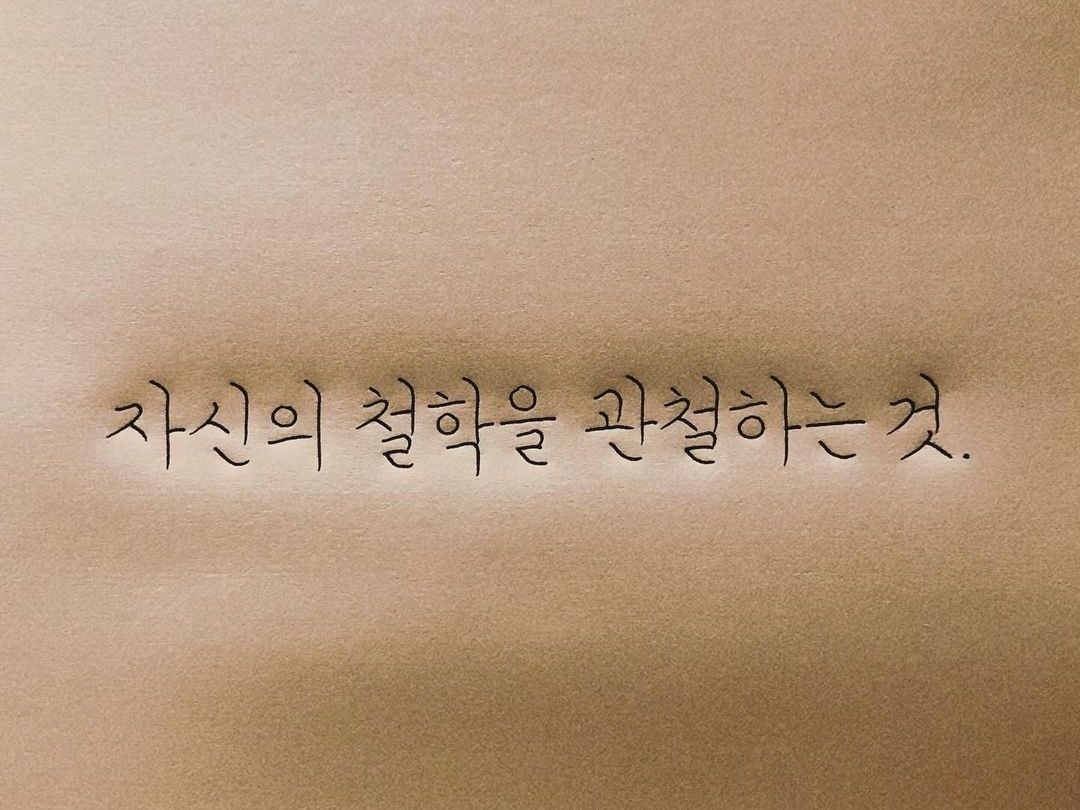 자신의 철학을 관철하는 것.